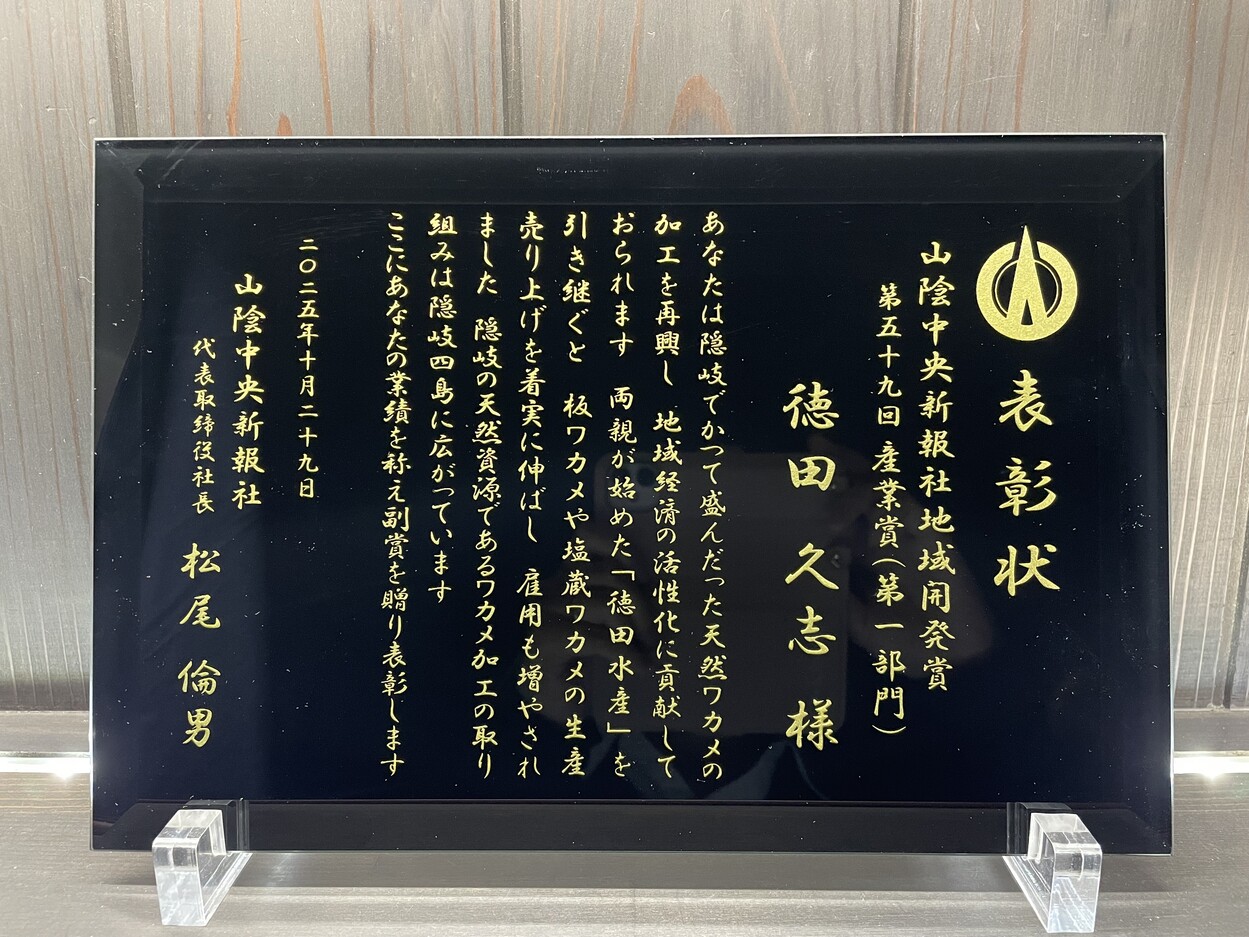 表彰状
山陰中央新報社地域開発賞
第五十九回 産業賞(第一部門)
徳田久志 様
あなたは隠岐でかつて盛んだった天然ワカメの
加工を再興し 地域経済の活性化に貢献して
おられます 両親が始めた「徳田水産」を
引き継ぐと 板ワカメや塩蔵ワカメの生産
売り上げを着実に伸ばし 雇用も増やされ
ました 隠岐の天然資源であるワカメ加工の取り
組みは隠岐四島に広がっています
ここにあなたの業績を称え副賞を贈り表彰します
二〇二五年十月二十九日
山陰中央新報社
代表取締役社長 松尾 倫男